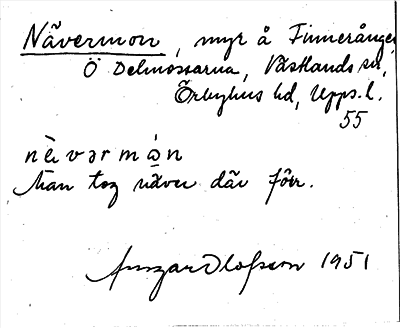 Nävermon, myr å Finnerånger
Ö Delmossarna, Västlands sn,
Örbyhus hd, Upps. l.
55
nɛ̀vərmɑ̀n
Man tog näver där förr.
Ansgar Olofsson 1951